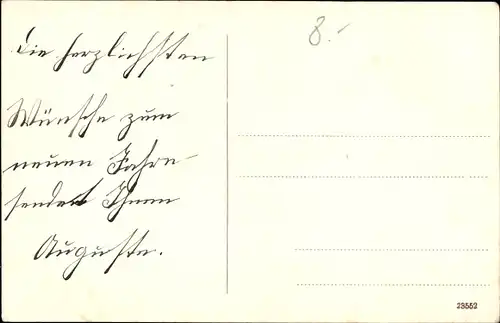 Die herzlichsten
8.-
Wünsche zum
neuen Jahre
sendet Ihnen
Auguste.
23552